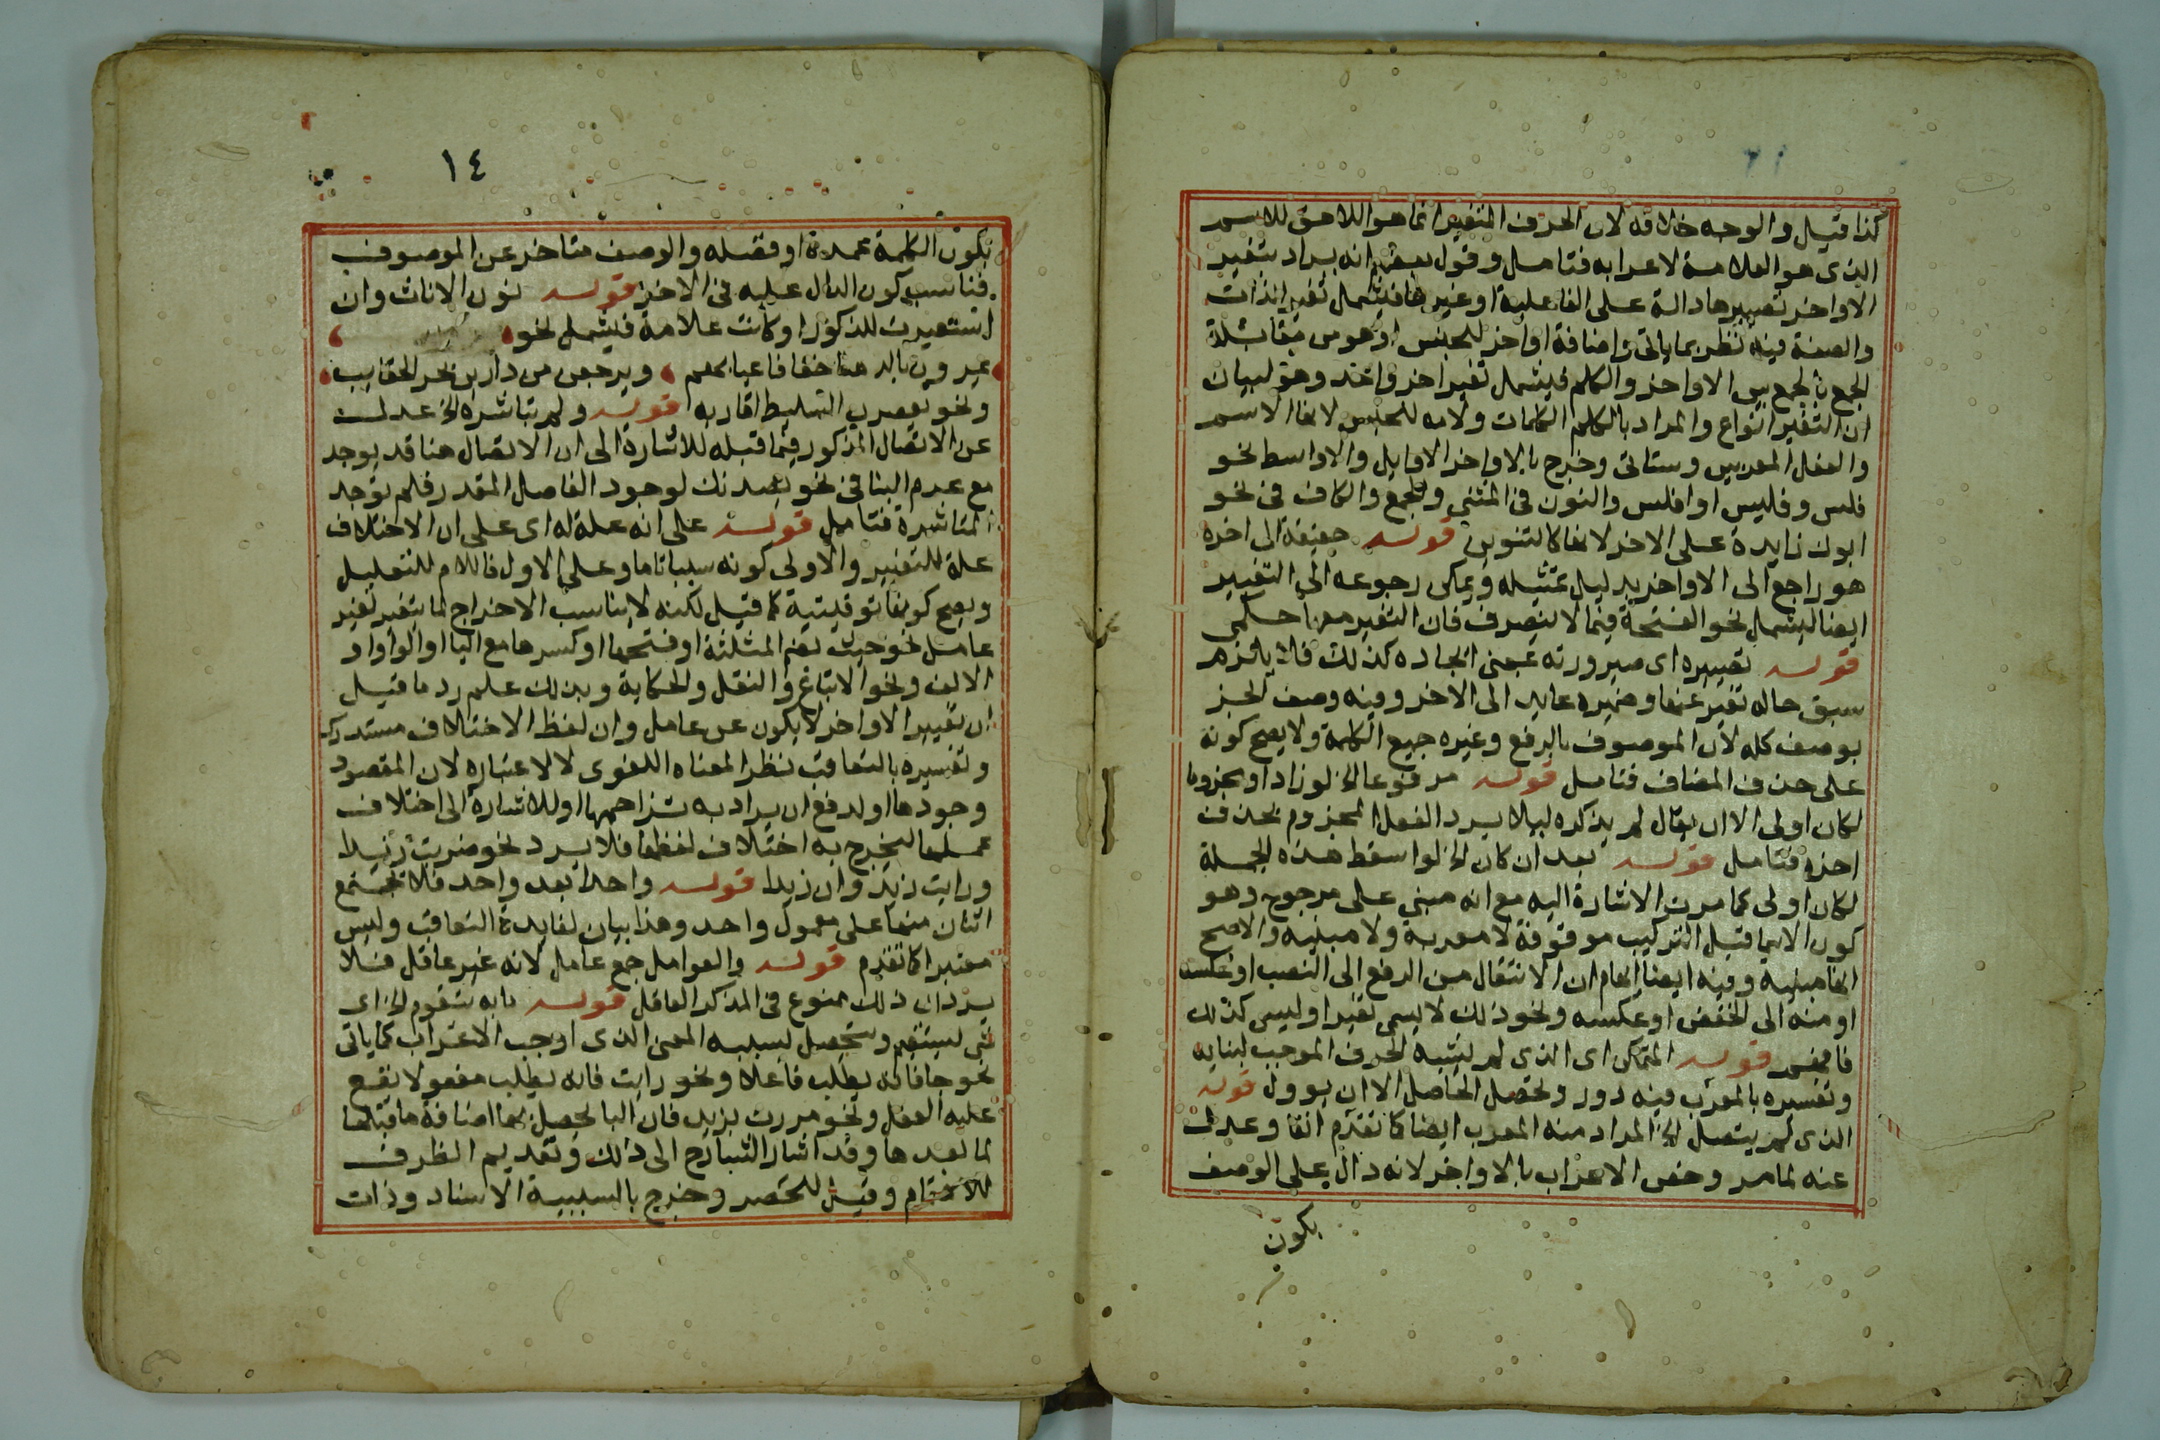 كذا قيل والوجه خلافه لان الحرف المتغير انما هو اللاحق للاسم
الذي هو العلامة لاعرابه فتامل وقول بعضهم انه يراد بتغير
الاواخر تصييرها دالة على الفاعلية او غيرها فيشمل تغير الذات
والصفة فيه نظر بما ياتي واضافة اواخر للجنس او هو من مقابلة
الجمع بالجمع بين الاواخر والكلم فيشمل تغير اخر واحد وهو لبيان
ان التغير انواع والمراد بالكلم الكلمات ولامه للجنس لانها الاسم
والفعل المعربين وستاتي وخرج بالاواخر الاوايل والاواسط نحو
فلس وفليس او افلس والنون في المثنى والجمع والكاف في نحو
ابوك زايدة على الاخر لانها كالتنوين قوله حقيقة الى اخره
هو راجع الى الاواخر بدليل تمثيله ويمكن رجوعه الى التغيير
ايضا ليشمل نحو الفتحة فيما لا ينصرف فان التغير معها حكمي
قوله تغييره اي صيرورته بمعنى ايجاده كذلك فلا يلزم
سبق حاله تغير عنها وضميره عايد الى الاخر وفيه وصف الجز
بوصف كله لان الموصوف بالرفع وغيره جميع الكلمة ولا يصح كونه
على حذف المضاف فتامل قوله مرفوعا الخ لو زاد او مجزوما
لكان اولى الا ان يقال لم يذكره ليلا يرد الفعل المجزوم بحذف
اخره فتامل قوله بعد ان كان الخ لو اسقط هذه الجملة
لكان اولى كما مرت الاشارة اليه مع انه مبني على مرجوح وهو
كون الاسما قبل التركيب موقوفة لا معربة ولا مبنية والاصح
انها مبنية وفيه ايضا ايهام ان الانتقال من الرفع الى النصب او عكسه
او منه الى الخفض او عكسه ونحو ذلك لا يسمى تغيرا وليس كذلك
فافهم قوله المتمكن اي الذي لم يشبه الحرف الموجب لبنايه
وتفسيره بالمعرب فيه دور وتحصيل الحاصل الا ان يوول قوله
الذي لم يتصل الخ المراد منه المعرب ايضا كما تقدم انفا وعدل
عنه لما مر وخص الاعراب بالاواخر لانه دال على الوصف
يكون
١٤
بكون الكلمة عمدة او فضله والوصف متاخر عن الموصوف
فناسب كون الدال عليه في الاخر قوله نون الاناث وان
استعيرت للذكور او كانت علامة فيشمل نحو
يمرون بالدهنا خفافا عيابهم ويرجعن من دارين بجر الحقايب
ونحو يعصرن السليط اقاربه قوله ولم تباشره الخ عدل
عن الاتصال المذكور فيما قبله للاشارة الى ان الاتصال هنا قد يوجد
مع عدم البنا في نحو يصدنك لوجود الفاصل المقدر فلم توجد
المباشرة فتامل قوله على انه علة له اي على ان الاختلاف
علة للتغيير والاولى كونه سببا تاما وعلى الاول فاللام للتعليل
ويصح كونها توقيتية كما قيل لكنه لا يناسب الاخراج لما يتغير بغير
عامل نحو حيث بضم المثلثة او فتحها او كسرها مع اليا او الواو او
الالف ونحو الاتباع والنقل والحكاية وبذلك علم رد ما قيل
ان تغيير الاواخر لا يكون عن عامل وان لفظ الاختلاف مستدرك
وتفسيره بالتعاقب نظرا لمعناه اللغوي لا لاعتباره لان المقصود
وجودها او لدفع ان يراد به تزاحمها او للاشارة الى اختلاف
عملها ليخرج به اختلاف لفظها فلا يرد نحو ضربت زيدا
ورايت زيدا وان زيدا قوله واحدا بعد واحد فلا يجتمع
اثنان منها على معمول واحد وهذا بيان لفايدة التعاقب وليس
معتبرا كما تقدم قوله والعوامل جمع عامل لانه غير عاقل فلا
يرد ان ذلك ممنوع في المذكر العاقل قوله ما به يتقوم الخ اي
شي يستقيم ويتحصل بسببه المعنى الذي اوجب الاعراب كما ياتي
نحو جا فانه يطلب فاعلا ونحو رايت فانه يطلب مفعولا يقع
عليه الفعل ونحو مررت بزيد فان البا يحصل بها اضافة ما قبلها
لما بعدها وقد اشار الشارح الى ذلك وتقديم الظرف
للاهتمام وقيل للحصر وخرج بالسببية الاسناد وذات